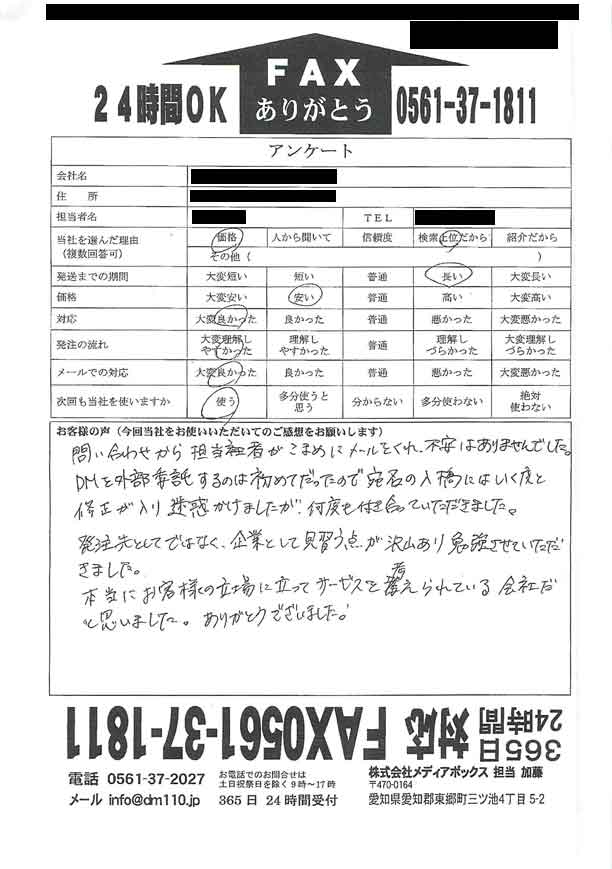 FAX
24時間OK ありがとう 0561-37-1811
アンケート
会社名
住 所
担当者名 TEL
当社を選んだ理由 価格 人から聞いて 信頼度 検索上位だから 紹介だから
(複数回答可) その他 ( )
発送までの期間 大変短い 短い 普通 長い 大変長い
価格 大変安い 安い 普通 高い 大変高い
対応 大変良かった 良かった 普通 悪かった 大変悪かった
発注の流れ 大変理解しやすかった 理解しやすかった 普通 理解しづらかった 大変理解しづらかった
メールでの対応 大変良かった 良かった 普通 悪かった 大変悪かった
次回も当社を使いますか 使う 多分使うと思う 分からない 多分使わない 絶対使わない
お客様の声(今回当社をお使いいただいてのご感想をお願いします)
問い合わせから担当者がこまめにメールをくれ、不安はありませんでした。
DMを外部委託するのは初めてだったので宛名の入稿にはいく度と
修正が入り迷惑かけましたが、何度も付き合っていただきました。
発注先としてではなく、企業として見習う点が沢山あり勉強させていただ
きました。
本当にお客様の立場に立ってサービスを考えられている会社だ
と思いました。ありがとうございました。
365日 24時間 対応 FAX0561-37-1811
電話 0561-37-2027 お電話でのお問合せは 土日祝祭日を除く9時~17時 株式会社メディアボックス 担当 加藤
〒470-0164
メール info@dm110.jp 365日 24時間受付 愛知県愛知郡東郷町三ツ池4丁目5-2